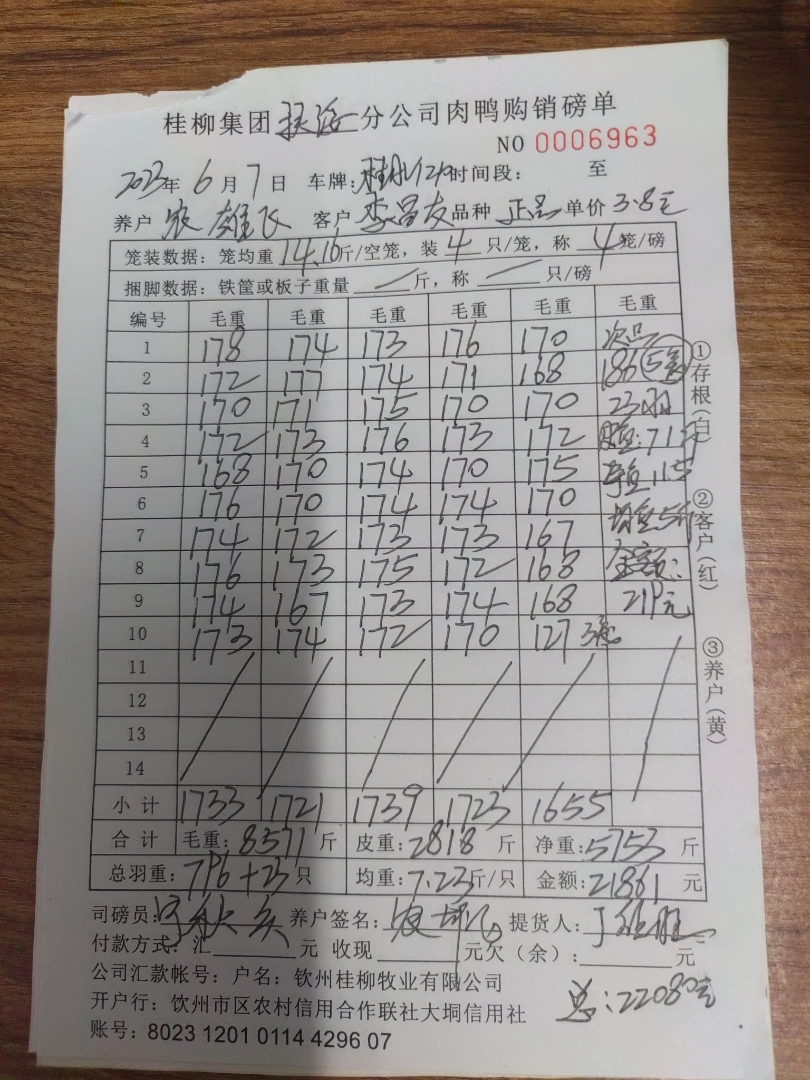 桂柳集团 扶沿 分公司肉鸭购销磅单
NO 0006963
2023年 6月 7日 车牌: 时间段: 至
养户 农雄飞 客户 李昌友 品种 正品 单价 3.8元
笼装数据: 笼均重 14.16斤/空笼, 装 4 只/笼, 称 4笼/磅
捆脚数据: 铁筐或板子重量 / 斤, 称 / 只/磅
编号 毛重 毛重 毛重 毛重 毛重 毛重
1 178 174 173 176 170 次品
2 172 177 174 171 168 186 5笼
3 170 171 175 170 170 23羽
4 172 173 176 173 172 皮重:71斤
5 168 170 174 170 175 净重115
6 176 170 174 174 170 均重5斤
7 174 172 173 173 167
8 176 173 175 172 168 金额:
9 174 167 173 174 168 219元
10 173 174 172 170 127 3笼
11
12
13
14
小计 1733 1721 1739 1723 1655
合计 毛重: 8571 斤 皮重: 2818 斤 净重: 5753 斤
总羽重: 796+23 只 均重: 7.23斤/只 金额: 21861 元
司磅员: 养户签名: 农雄飞 提货人:
付款方式: 汇 元 收现 元欠(余): 元
公司汇款帐号: 户名: 钦州桂柳牧业有限公司
开户行: 钦州市区农村信用合作联社大垌信用社
总: 22080元
账号: 8023 1201 0114 4296 07
①存根(白)
②客户(红)
③养户(黄)